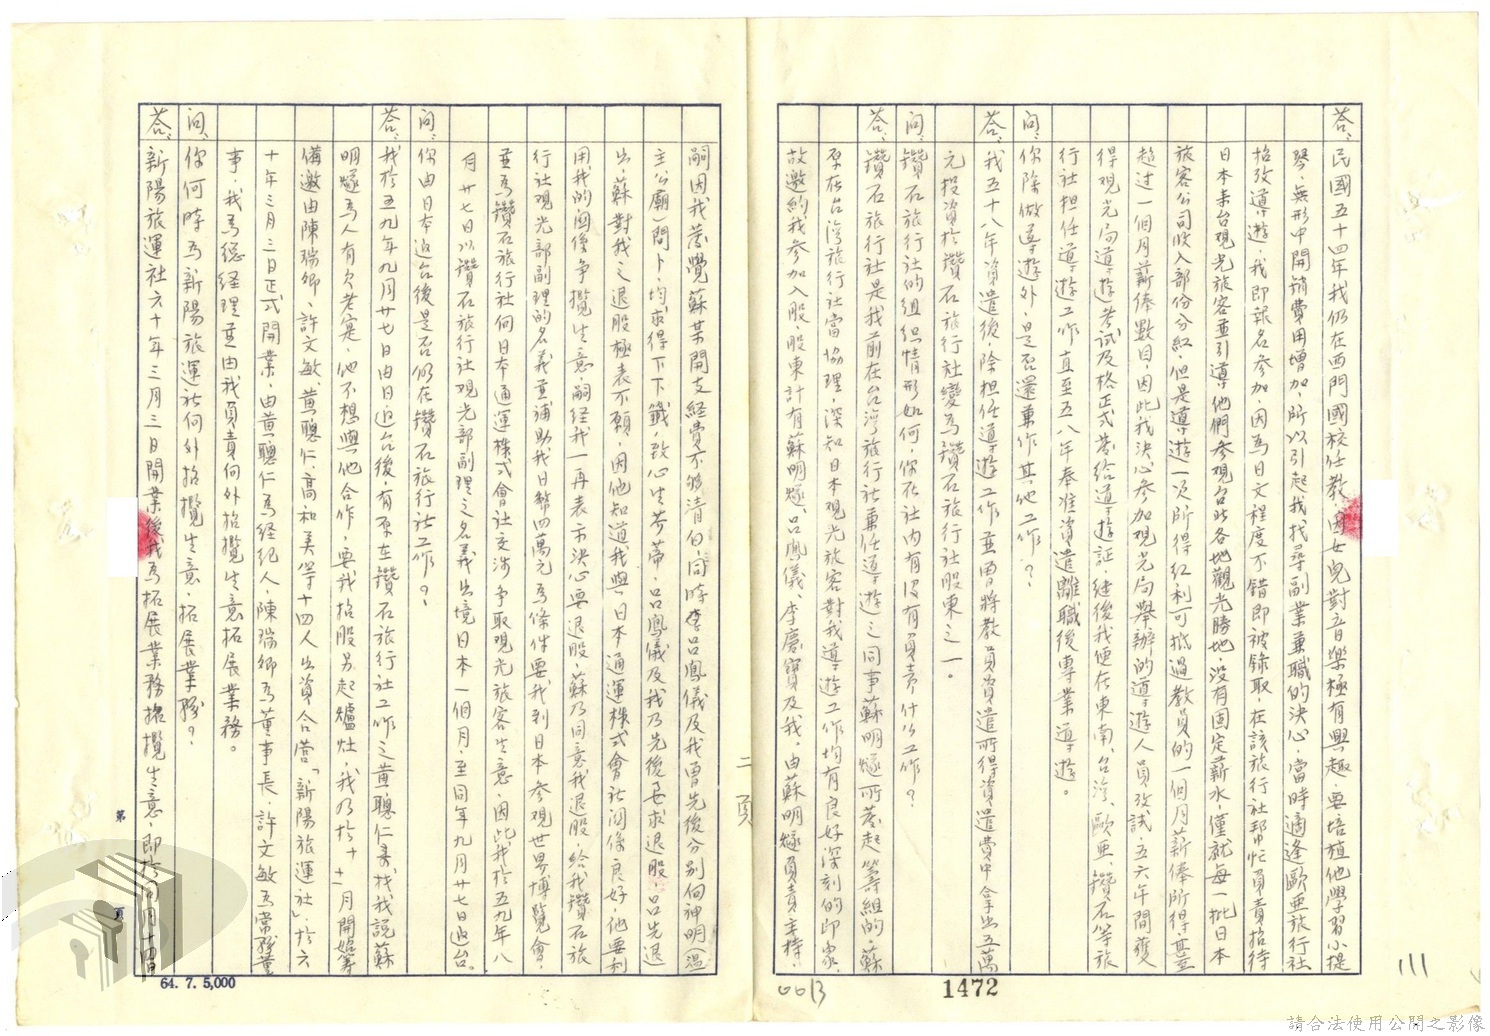 答、民國五十四年我仍在西門國校任教，因女兒對音樂極有興趣，要培植他學習小提
琴，無形中開銷費用增加，所以引起我找尋副業兼職的決心，當時適逢歐亞旅行社
招攷導遊，我即報名參加，因為日文程度不錯即被錄取，在該旅行社幫忙負責招待
日本來台觀光旅客並引導他們參觀台北各地觀光勝地，沒有固定薪水，僅就每一批日本
旅客公司收入部份分紅，但是導遊一次所得紅利可抵過教員的一個月薪俸所得，甚至
超过一個月薪俸數目，因此我決心參加觀光局舉辦的導遊人員攷試，五六年間獲
得觀光局導遊考試及格正式發給導遊証，继後我便在東南、台湾、歐亞、鑽石等旅
行社担任導遊工作直至五八年奉准資遣離職後專業導遊。
問、你除做導遊外，是否還兼作其他工作？
答、我五十八年資遣後，除担任導遊工作並曾將教員資遣所得資遣費中拿出五萬
元投資於鑽石旅行社變為鑽石旅行社股東之一。
問、鑽石旅行社的組织情形如何，你在社内有沒有負責什么工作？
答、鑽石旅行社是我前在台湾旅行社兼任導遊之同事蘇明燧所發起籌組的，蘇
原在台湾旅行社當協理，深知日本觀光旅客對我導遊工作均有良好深刻的印象，
故邀約我參加入股，股東計有蘇明燧、呂鳳儀、李慶寶及我，由蘇明燧負責主持，
嗣因我發覺蘇某開支經費不够清白，同時李呂鳳儀及我曾先後分别向神明（溫
主公廟）問卜，均求得下下籤，故心生芥蒂，呂鳳儀及我乃先後要求退股，呂先退
出，蘇對我之退股極表不願，因他知道我與日本通運株式會社関係良好，他要利
用我的関係争攬生意，嗣经我一再表示決心要退股，蘇乃同意我退股，給我鑽石旅
行社观光部副理的名義並補助我日幣四萬元為條件要我到日本参观世界博覽會，
並為鑽石旅行社向日本通運株式會社交涉争取观光旅客生意，因此我於五九年八
月廿七日以鑽石旅行社观光部副理之名義出境日本一個月，至同年九月廿七日返台。
問、你由日本返台後是否仍在鑽石旅行社工作？
答、我於五九年九月廿七日由日返台後，有原在鑽石旅行社工作之黄聰仁来找我說蘇
明燧為人有欠老实，他不想與他合作，要我招股另起爐灶，我乃於十、十一月開始籌
備邀由陳瑞卿、許文敏、黄聰仁、高和美等十四人出資合营「新陽旅運社」，於六
十年三月三日正式開業，由黄聰仁為經纪人，陳瑞卿為董事長，許文敏為常務董
事，我為總經理並由我負責向外招攬生意拓展業務。
問、你何時為新陽旅運社向外招攬生意，拓展業務？
答、新陽旅運社六十年三月三日開業後我為拓展業務招攬生意，即於同月十四日
二頁
第 頁
64. 7. 5,000
0013
1472
111
請合法使用公開之影像